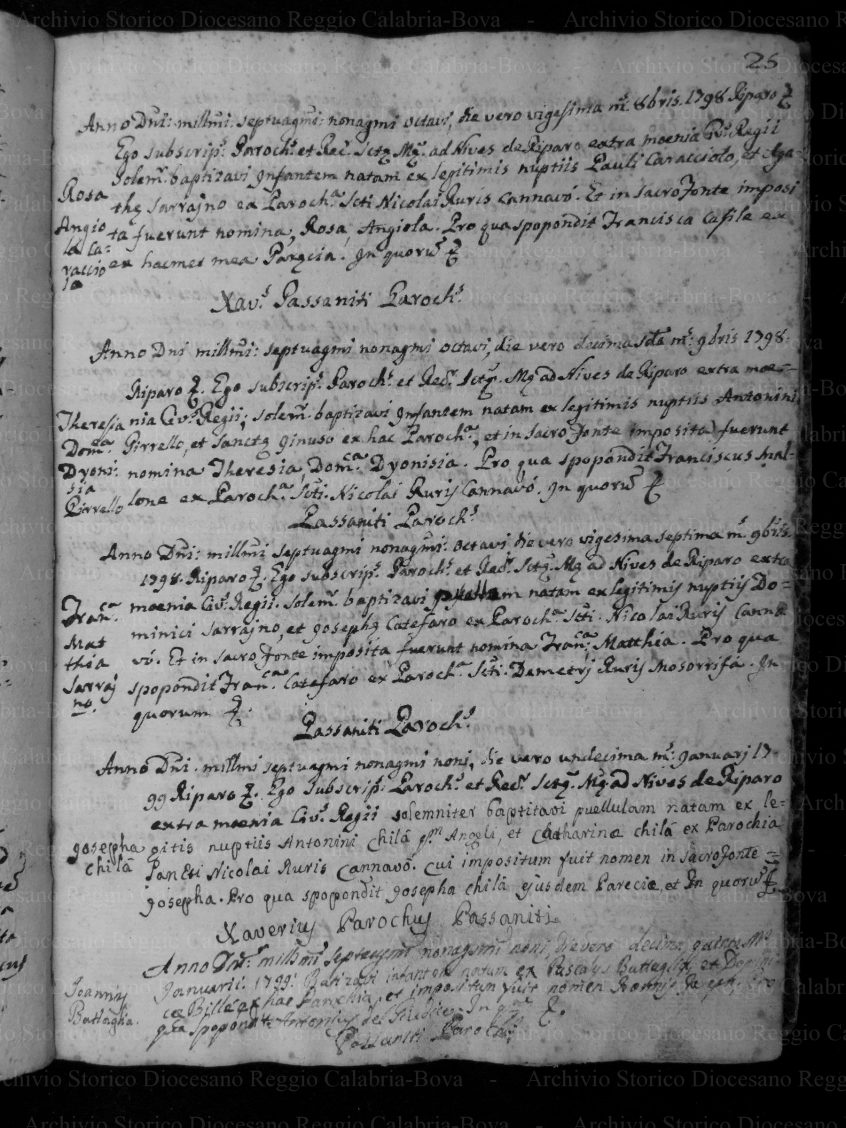 25
Anno Dñi: millmi: septuagmi: nonagmi octavi, die vero vigesima m: 8bris. 1798 Riparo &
Ego subscrip: Paroch: et Rec: Sctę Mę. ad Nives de Riparo extra moenia Civ: Regii
solem: baptizavi Infantem natam ex legitimis nuptiis Pauli Caracciolo, et Aga-
thę Sarrajno ex Paroch: Scti Nicolai Ruris Cannavó. Et in sacro Fonte imposi
ta fuerunt nomina, Rosa Angiola. Pro qua spopondit Francisca Casile ex
ex hacmet mea Parœcia. In quorũ &
Rosa
Angio
la Ca-
raccio
lo
Xav: Passaniti Paroch:
Anno Dñi millmi: septuagmi nonagmi octavi, die vero decima sda m: 9bris 1798.
Riparo &. Ego subscrip: Paroch: et Rec: Sctę. Mę ad Nives de Riparo extra moe-
nia Civ: Regii; solem: baptizavi Infantem natam ex legitimis nuptiis Antonini
Pirrello, et Sanctę Ginuso ex hac Paroch:ª, et in sacro Fonte imposita fuerunt
nomina Theresia, Dom:ca Dyonisia. Pro qua spopondit Franciscus Mal-
lone ex Paroch:ª Scti. Nicolai Ruris Cannavó. In quorũ &
Theresia
Dom:ca
Dyoni:
sia
Pirrello
Passaniti Paroch:
Anno Dñi: millmi septuagmi nonagmi: octavi die vero vigesima septima m: 9bris
1798. Riparo &. Ego subscrip: Paroch: et Rec: Sctę. Mę ad Nives de Riparo extra
moenia Civ: Regii. solem: baptizavi natam ex legitimis nuptiis Do-
minici Sarrajno, et Josephę Catefaro ex Paroch:ª Scti. Nicolai Ruris Canna
vó. Et in sacro Fonte imposita fuerunt nomina Fran:ca Matthia. Pro qua
spopondit Fran:ca Catefaro ex Paroch:ª Scti. Demetrij Ruris Mosorrifa. In
quorum &.
Fran:ca
Mat
thia
Sarraj
no.
Passaniti Paroch:
Anno Dñi. millmi septuagmi nonagmi noni, die vero undecima m: Januarj 17-
99 Riparo &. Ego Subscrip: Paroch: et Rec: Sctę. Mę ad Nives de Riparo
extra moenia Civ: Regii solemniter baptitavi puellulam natam ex le-
gitis nuptiis Antonini Chilá qm Angeli, et Catharinæ chilá ex Parochia
Sancti Nicolai Ruris Cannavó. cui impositum fuit nomen in sacro Fonte
Josepha. Pro qua spopondit Josepha chilá ejusdem Pareciæ, et In quorũ &
Josepha
chilá
Xaverius Parochus Passaniti
Anno Dñi millmi septuagmi nonagmi noni, die vero decima quinta M:
Januarii. 1799: Batizavi infantem natum ex Pascalys Battaglia, et Domini
cæ Bille ex hac Parechia, et impositum fuit nomen
spopondit Antonius del Giudice. In &.
Joannes
Battaglia.
Passaniti Paroch: